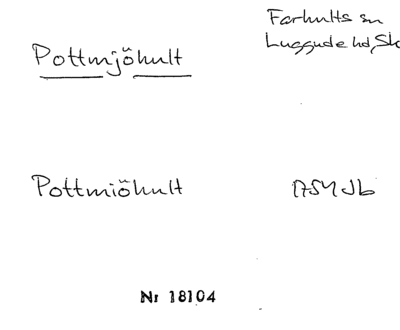 Farhults sn
Luggude hd, Sk
Pottmjöhult
Pottmiöhult
1754 Jb
Nr 18104